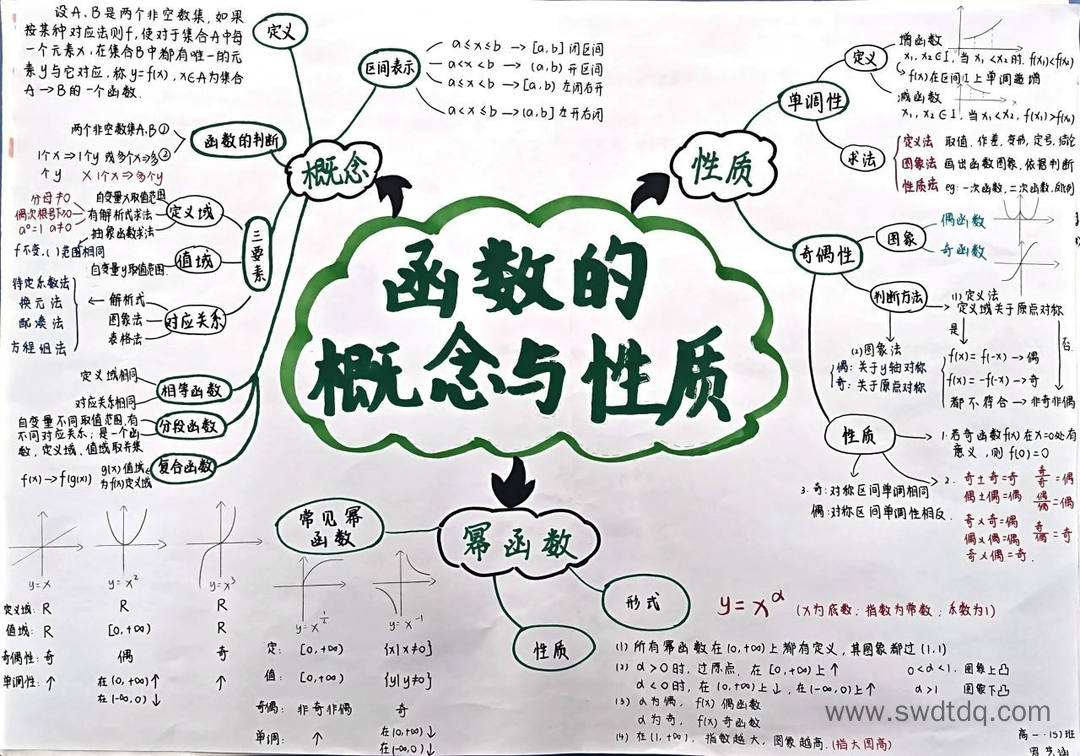 函数的
概念与性质
概念
定义
设A、B是两个非空数集,如果
按某种对应法则f,使对于集合A中每
一个元素x,在集合B中都有唯一的元
素y与它对应,称y=f(x),x∈A为集合
A→B的一个函数.
区间表示
a≤x≤b → [a,b] 闭区间
a<x<b → (a,b) 开区间
a≤x<b → [a,b) 左闭右开
a<x≤b → (a,b] 左开右闭
函数的判断
两个非空数集A,B ①
1个x⇒1个y 或多个x⇒多 ②
个y X 1个x⇒多个y
三要素
定义域
自变量x取值范围
有解析式求法
抽象函数求法
分母≠0
偶次根号下≥0
a⁰=1 a≠0
f不变,( )范围相同
值域
自变量y取值范围
对应关系
解析式
图象法
表格法
待定系数法
换元法
配凑法
方程组法
相等函数
定义域相同
对应关系相同
分段函数
自变量不同取值范围,有
不同对应关系;是一个函
数,定义域、值域取并集
复合函数
f(x)→f(g(x))
g(x)值域
为f(x)定义域
性质
单调性
定义
增函数
x₁,x₂∈I,当x₁<x₂时,f(x₁)<f(x₂)
f(x)在区间I上单调递增
减函数
x₁,x₂∈I,当x₁<x₂,f(x₁)>f(x₂)
求法
定义法 取值、作差、变形、定号、结论
图象法 画出函数图象,依据判断
性质法 eg:一次函数,二次函数,
奇偶性
图象
偶函数
奇函数
判断方法
(1)定义法
定义域关于原点对称
是
否
f(x)=f(-x)→偶
f(x)=-f(-x)→奇
都不符合→非奇非偶
(2)图象法
偶:关于y轴对称
奇:关于原点对称
性质
1.若奇函数f(x)在x=0处有
意义,则f(0)=0
2. 奇±奇=奇 奇/奇=偶
偶±偶=偶 偶/偶=偶
奇×奇=偶
偶×偶=偶 奇/偶=奇
奇×偶=奇
3.奇:对称区间单调相同
偶:对称区间单调性相反.
幂函数
常见幂
函数
y=x
y=x²
y=x³
定义域: R R R
值域: R [0,+∞) R
奇偶性: 奇 偶 奇
单调性: ↑ 在(0,+∞)↑ ↑
在(-∞,0)↓
y=x^½
y=x⁻¹
定: [0,+∞) {x|x≠0}
值: [0,+∞) {y|y≠0}
奇偶: 非奇非偶 奇
单调: ↑ 在(0,+∞)↓
在(-∞,0)↓
形式
y=x^α (x为底数;指数为常数;系数为1)
性质
(1)所有幂函数在(0,+∞)上都有定义,其图象都过(1,1)
(2) α>0时,过原点,在[0,+∞)上↑ 0<α<1,图象上凸
α<0时,在(0,+∞)上↓,在(-∞,0)上↑ α>1 图象下凸
(3) α为偶,f(x)偶函数
α为奇,f(x)奇函数
(4)在(1,+∞),指数越大,图象越高.(指大图高)
www.swdtdq.com
高一.(5)班